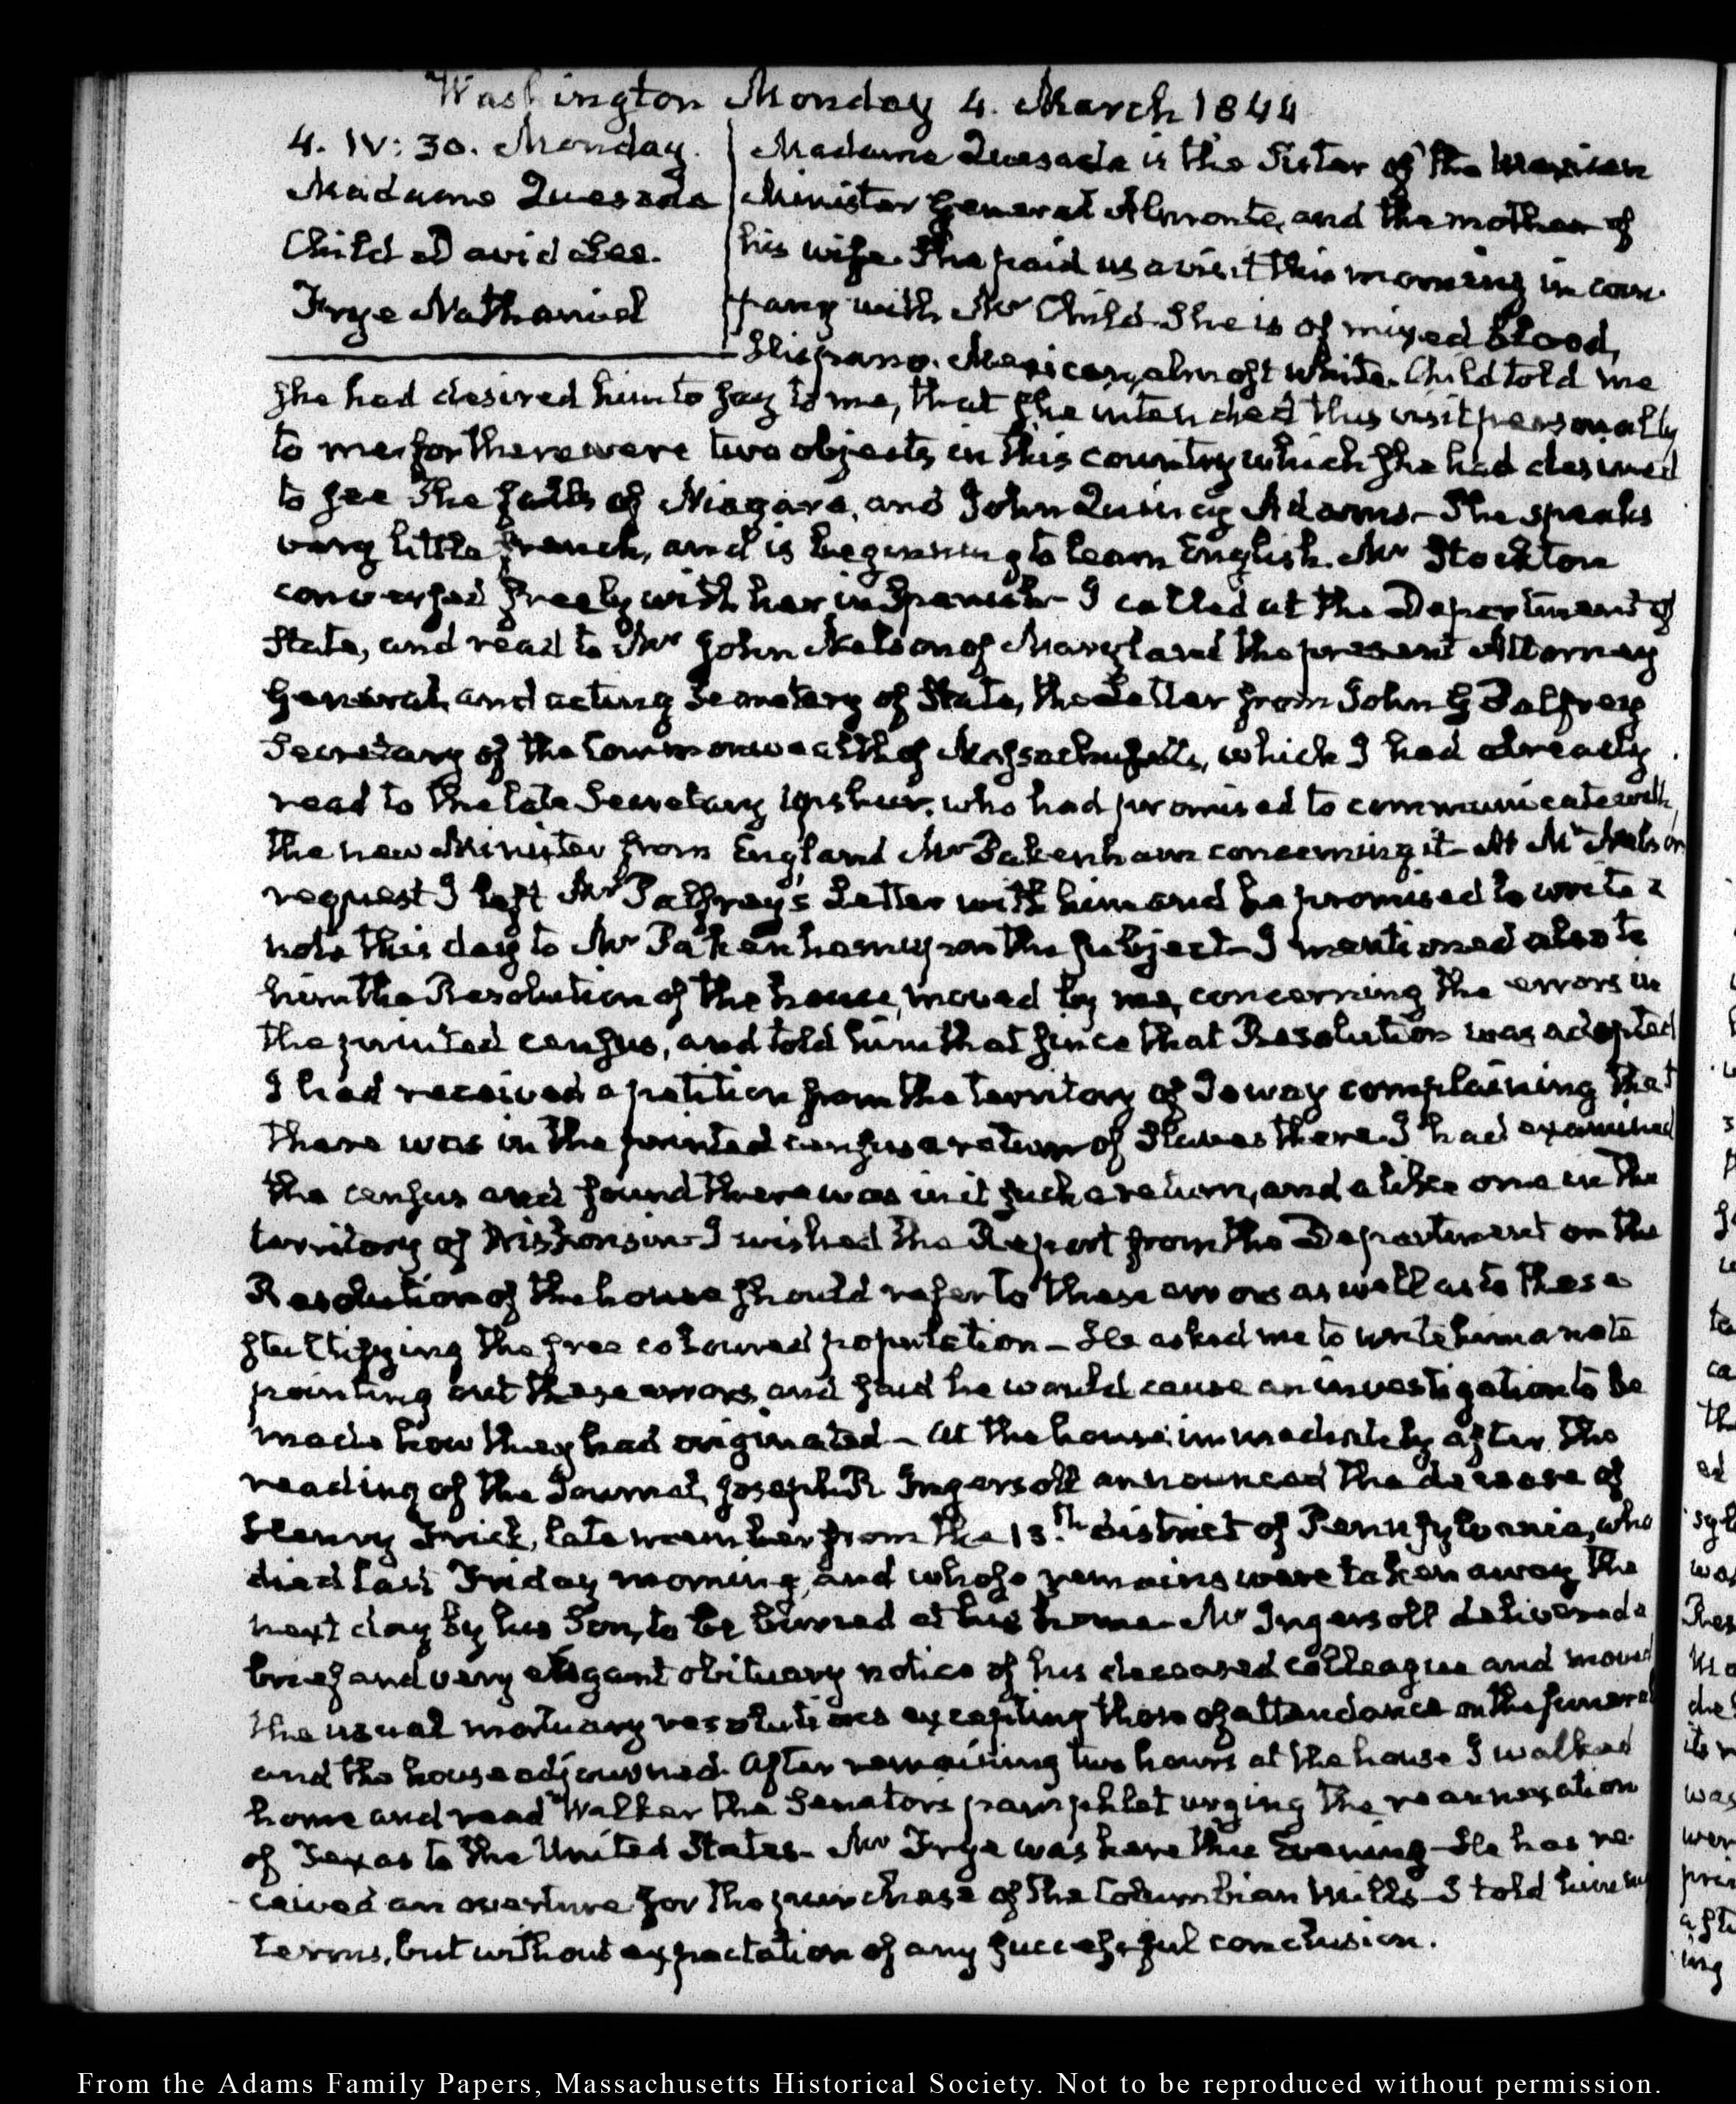 Washington Monday 4. March 1844
4. IV: 30. Monday.
Madame Quesada
Child David Lee.
Frye Nathaniel
Madame Quesada is the Sister of the Mexican
Minister General Almonte, and the mother of
his wife. She paid us a visit this morning in com-
pany with Mr Child. She is of mixed blood,
Hispano-Mexican, almost white. Child told me
she had desired him to say to me, that she intended this visit personally
to me; for there were two objects in this country which she had desired
to see The falls of Niagara, and John Quincy Adams— She speaks
very little French, and is beginning to learn English. Mr Stockton
conversed freely with her in Spanish— I called at the Department of
State, and read to Mr John Nelson of Maryland the present Attorney
General, and acting Secretary of State, the Letter from John G Palfrey
Secretary of the Commonwealth of Massachusetts, which I had already
read to the late Secretary Upshur, who had promised to communicate with
the new Minister from England Mr Pakenham concerning it— At Mr Nelson
request I left Mr Palfrey's Letter with him and he promised to write a
note this day to Mr Pakenham upon the subject— I mentioned also to
him the Resolution of the house, moved by me, concerning the errors in
the printed census, and told him that since that Resolution was adopted
I had received a petition from the territory of Ioway complaining that
there was in the printed census a return of Slaves there. I had examined
the census and found there was in it such a return, and a like one in the
territory of Wiskonsin— I wished the Report from the Department on the
Resolution of the house should refer to these errors as well as to these
stultifying the free coloured population— He asked me to write him a note
pointing out these errors, and said he would cause an investigation to be
made how they had originated— At the house, immediately after the
reading of the Journal, Joseph R Ingersoll announced the decease of
Henry Frick, late member from the 13.th district of Pennsylvania, who
died last Friday morning, and whose remains were taken away the
next day by his Son, to be buried at his home— Mr Ingersoll delivered a
brief and very elegant obituary notice of his deceased colleague and moved
the usual mortuary resolutions excepting those of attendance on the funeral
and the house adjourned. After remaining two hours at the house I walked
home and read Walker the Senator's pamphlet urging the re-annexation
of Texas to the United States— Mr Frye was here this Evening— He has re-
ceived an overture for the purchase of the Columbian Mills— I told him my
terms, but without expectation of any successful conclusion.
From the Adams Family Papers, Massachusetts Historical Society. Not to be reproduced without permission.